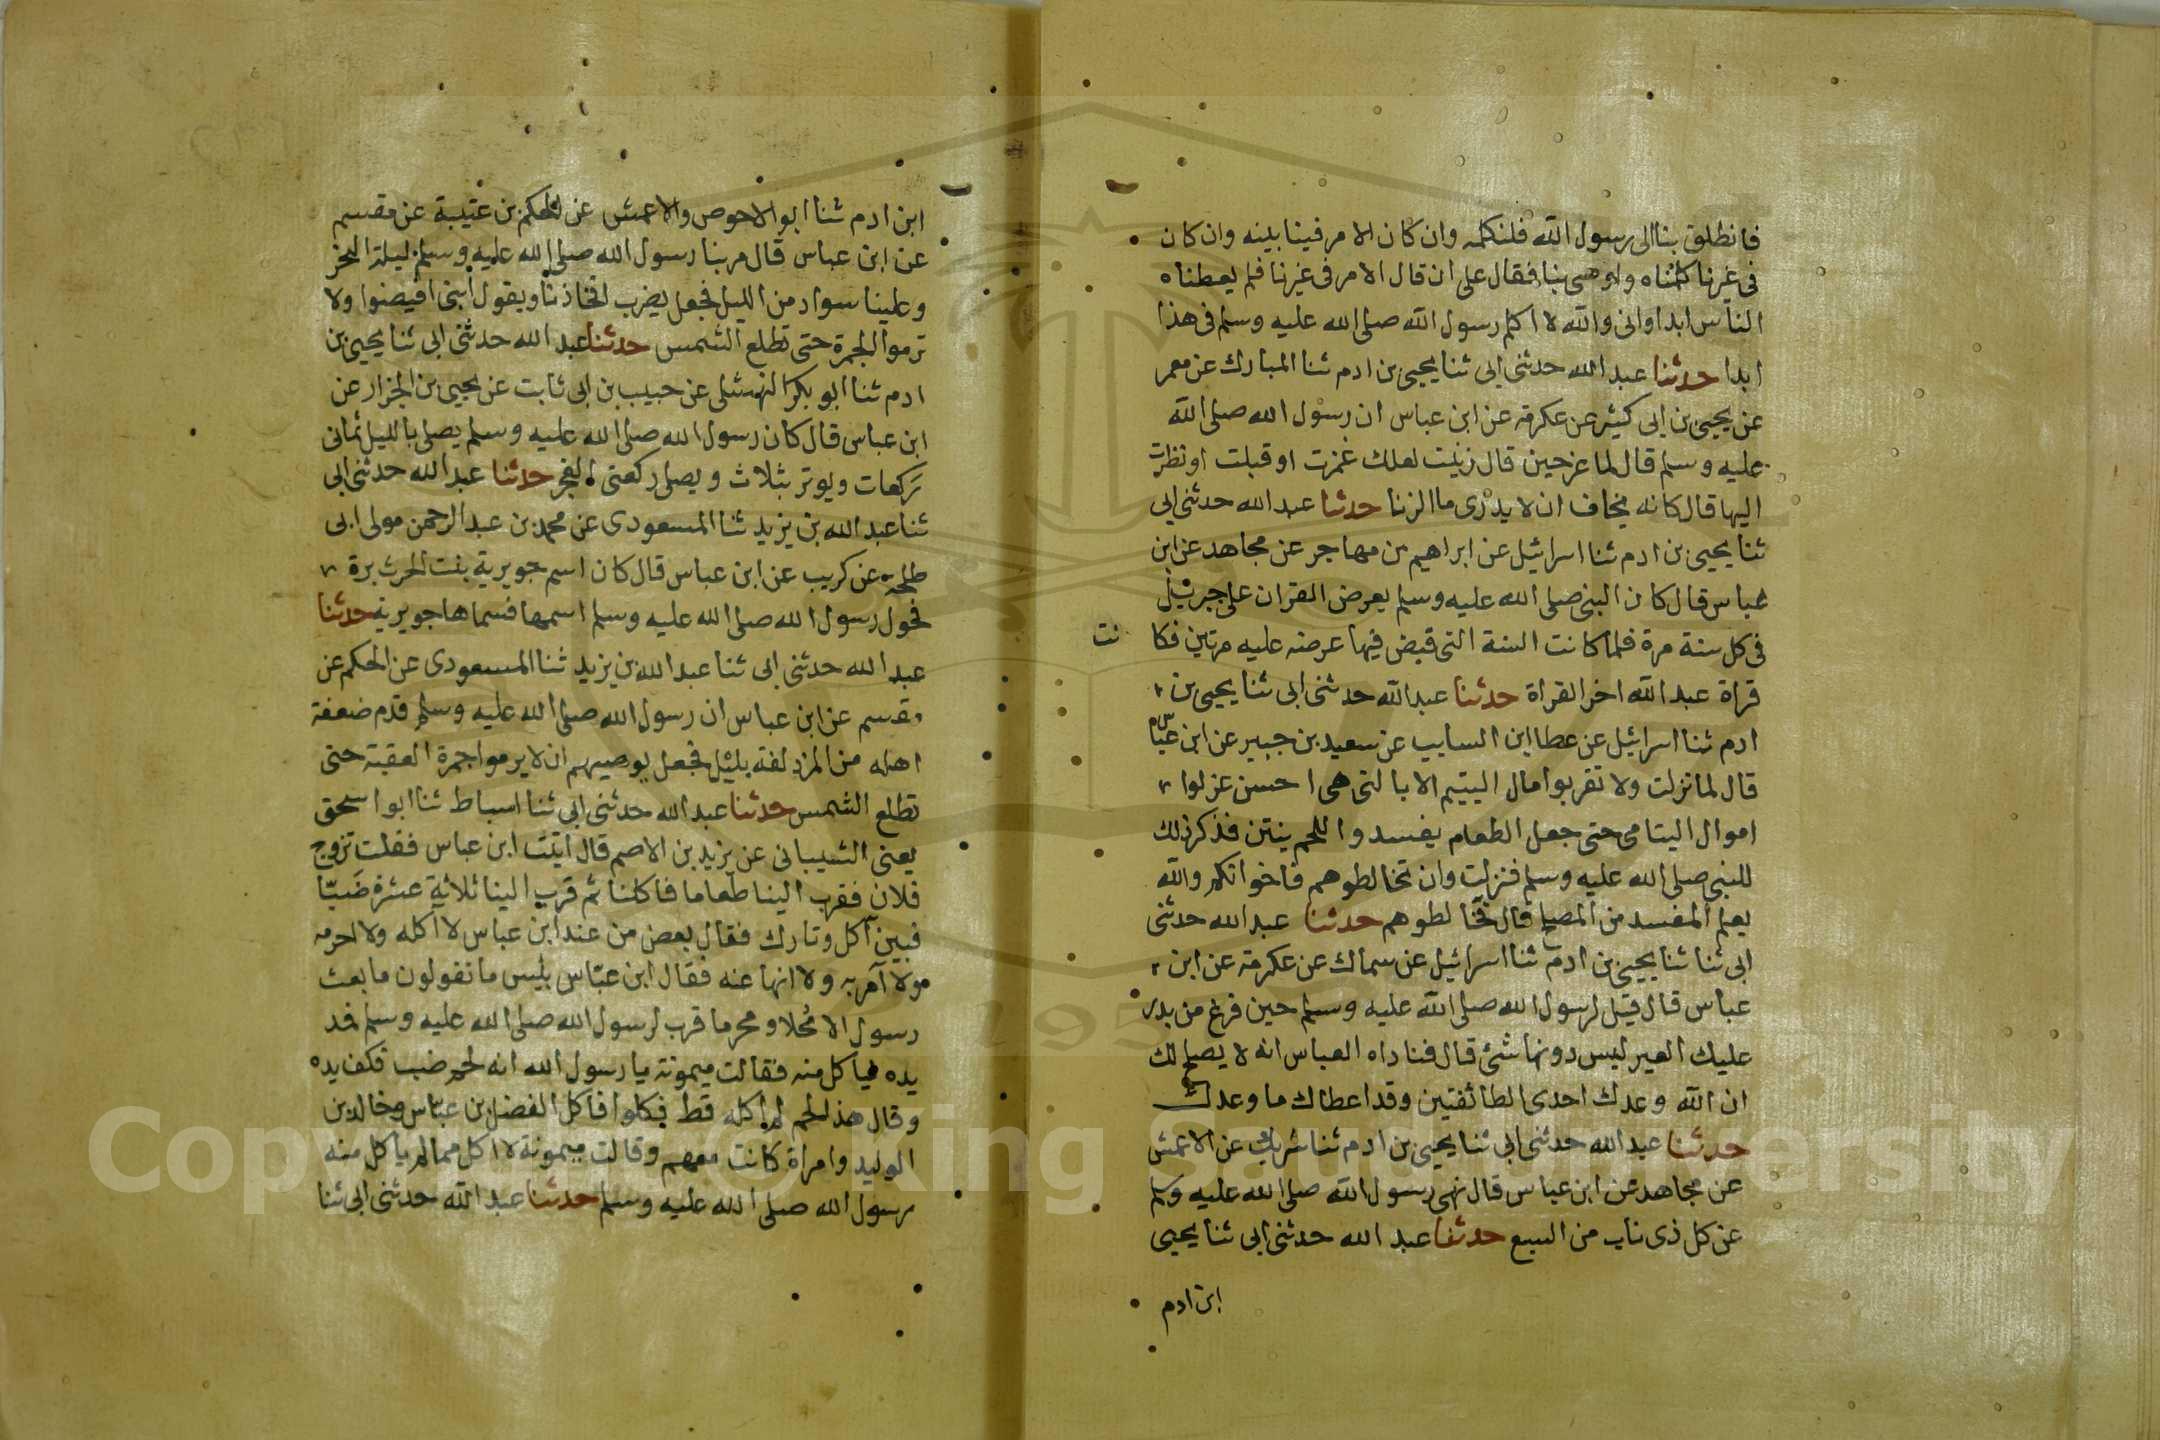 فانطلق بنا الى رسول الله فلنكلمه وان كان الامر فينا بينه وان كان
فى غيرنا كلمناه واوصى بنا فقال على ان قال الامر فى غيرنا فلم يعطناه
الناس ابدا وانى والله لا اكلم رسول الله صلى الله عليه وسلم فى هذا
ابدا حدثنا عبد الله حدثنى ابى ثنا يحيى بن ادم ثنا المبارك عن معمر
عن يحيى بن ابى كثير عن عكرمة عن ابن عباس ان رسول الله صلى الله
عليه وسلم قال لماعز حين قال زنيت لعلك غمزت او قبلت او نظرت
اليها قال كانه يخاف ان لا يدرى ما الزنا حدثنا عبد الله حدثنى ابى
ثنا يحيى بن ادم ثنا اسرائيل عن ابراهيم بن مهاجر عن مجاهد عن ابن
عباس قال كان النبى صلى الله عليه وسلم يعرض القران على جبريل
فى كل سنة مرة فلما كانت السنة التى قبض فيها عرضه عليه مرتين فكا نت
قراة عبد الله اخر القراة حدثنا عبد الله حدثنى ابى ثنا يحيى بن
ادم ثنا اسرائيل عن عطا ابن السايب عن سعيد بن جبير عن ابن عباس
قال لما نزلت ولا تقربوا مال اليتيم الا بالتى هى احسن عزلوا
اموال اليتامى حتى جعل الطعام يفسد واللحم ينتن فذكر ذلك
للنبى صلى الله عليه وسلم فنزلت وان تخالطوهم فاخوانكم والله
يعلم المفسد من المصلح قال فخالطوهم حدثنا عبد الله حدثنى
ابى ثنا ثنا يحيى بن ادم ثنا اسرائيل عن سماك عن عكرمة عن ابن
عباس قال قيل لرسول الله صلى الله عليه وسلم حين فرغ من بدر
عليك العير ليس دونها شئ قال فناداه العباس انه لا يصلح لك
ان الله وعدك احدى الطائفتين وقد اعطاك ما وعدك
حدثنا عبد الله حدثنى ابى ثنا يحيى بن ادم ثنا شريك عن الاعمش
عن مجاهد عن ابن عباس قال نهى رسول الله صلى الله عليه وسلم
عن كل ذى ناب من السبع حدثنا عبد الله حدثنى ابى ثنا يحيى
ابن ادم
ابن ادم ثنا ابو الاحوص والاعمش عن الحكم بن عتيبة عن مقسم
عن ابن عباس قال مر بنا رسول الله صلى الله عليه وسلم ليلة النحر
وعلينا سواد من الليل فجعل يضرب افخاذنا ويقول ابنى افيضوا ولا
ترموا الجمرة حتى تطلع الشمس حدثنا عبد الله حدثنى ابى ثنا يحيى بن
ادم ثنا ابو بكر النهشلى عن حبيب بن ابى ثابت عن يحيى بن الجزار عن
ابن عباس قال كان رسول الله صلى الله عليه وسلم يصلى بالليل ثمانى
ركعات ويوتر بثلاث ويصلى ركعتى الفجر حدثنا عبد الله حدثنى ابى
ثنا عبد الله بن يزيد ثنا المسعودى عن محمد بن عبد الرحمن مولى ابى
طلحة عن كريب عن ابن عباس قال كان اسم جويرية بنت الحرث برة
فحول رسول الله صلى الله عليه وسلم اسمها فسماها جويرية حدثنا
عبد الله حدثنى ابى ثنا عبد الله بن يزيد ثنا المسعودى عن الحكم عن
مقسم عن ابن عباس ان رسول الله صلى الله عليه وسلم قدم ضعفة
اهله من المزدلفة بليل فجعل يوصيهم ان لا يرموا جمرة العقبة حتى
تطلع الشمس حدثنا عبد الله حدثنى ابى ثنا اسباط ثنا ابو اسحق
يعنى الشيبانى عن يزيد بن الاصم قال اتيت ابن عباس فقلت تزوج
فلان فقرب الينا طعاما فاكلنا ثم قرب الينا ثلاثة عشرة ضَبّا
فبين آكل وتارك فقال بعض من عند ابن عباس لا آكله ولا احرمه
ولا آمر به ولا انها عنه فقال ابن عبّاس بليس ما تقولون ما بعث
رسول الا مُحلا ومحرما قرب لرسول الله صلى الله عليه وسلم فمد
يده لياكل منه فقالت ميمونة يا رسول الله انه لحم ضب فكف يده
وقال هذا لحم لم اكله قط فكلوا فاكل الفضل بن عباس وخالد بن
الوليد وامراة كانت معهم وقالت ميمونة لا اكل مما لم ياكل منه
رسول الله صلى الله عليه وسلم حدثنا عبد الله حدثنى ابى ثنا
Copyright © King Saud University